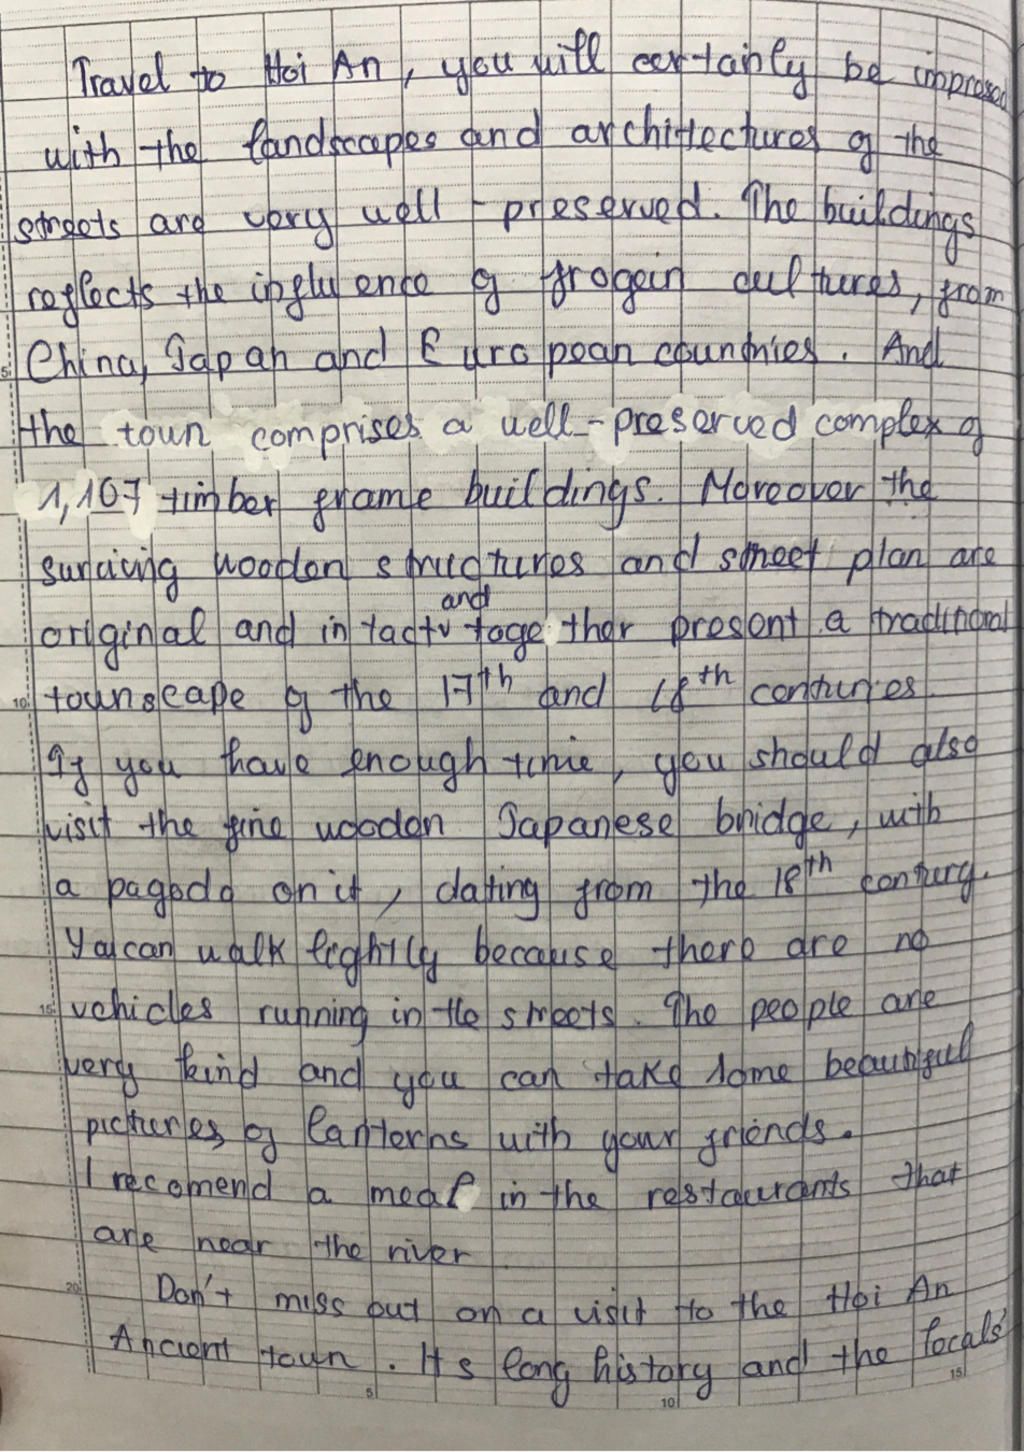 Travel to Hoi An, you will certainly be impressed
with the landscapes and architectures of the
streets are very well - preserved. The buildings
reflects the influence of frogein cultures, from
China, Japan and European countries. And
the town comprises a well-preserved complex of
1,107 timber frame buildings. Moreover the
surviving wooden structures and street plan are
and
original and intact together present a traditional
townscape of the 17th and 18th centuries
If you have enough time, you should also
visit the fine wooden Japanese bridge, with
a pagoda on it, dating from the 18th century.
You can walk lightly because there are no
vehicles running in the streets. The people are
very kind and you can take some beautiful
pictures of lanterns with your friends.
I recomend a meal in the restaurants that
are near the river
Don't miss out on a visit to the Hoi An
Ancient town. Its long history and the locals'
5
10
15
20
5
10
15